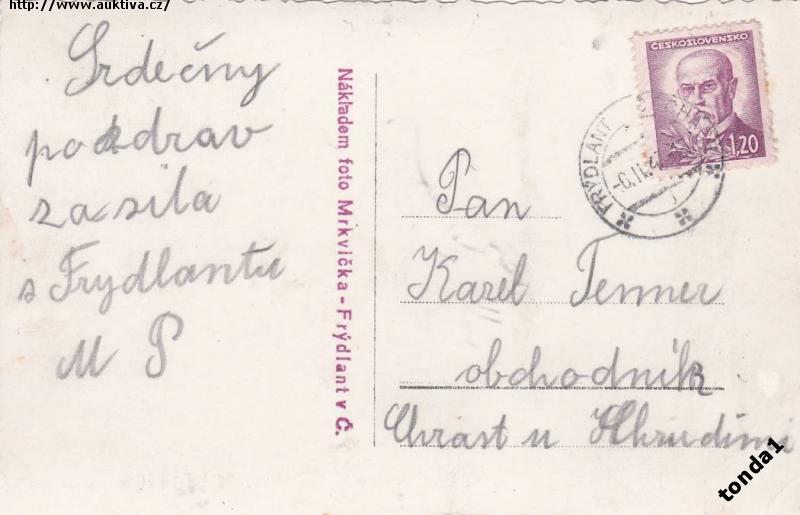 http://www.auktiva.cz/
Srdečný
pozdrav
zasila
s Frydlantu
M P
Nákladem foto Mrkvička - Frýdlant v Č.
ČESKOSLOVENSKO
1,20
FRÝDLANT
-6.II.4
Pan
Karel Tenner
obchodník
Chrast u Hhrudimi
tonda1